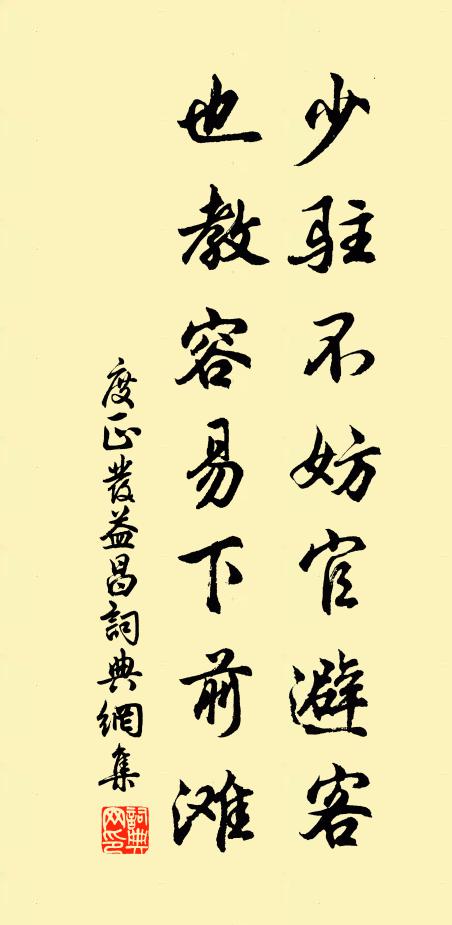 少駐不妨官避客
也教容易下前滩
度正發益昌詞典網集
詞典网印